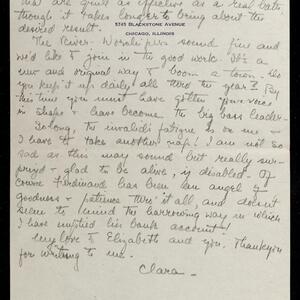 that are quite as effective as a real bath,
though it takes longer to bring about the
desired result.
5345 BLACKSTONE AVENUE
CHICAGO, ILLINOIS
The River-Worshipers sound fine and
we'd like to join in the good work. It's a
new and original way to boom a town. Do
you keep it up daily all thro' the year? By
this time you must have gotten your voice
in shape & have become the big bass leader.
So long the invalid's fatigue is on me &
I have to take another nap! I am not so
sad as this may sound but really sur-
prized & glad to be alive, if disabled. Of
course Ferdinand has been an angel of
goodness & patience thro' it all, and doesn't
seem to mind the harrowing way in which
I have emptied his bank account!
My love to Elizabeth and you. Thank you
for writing to me.
Clara.